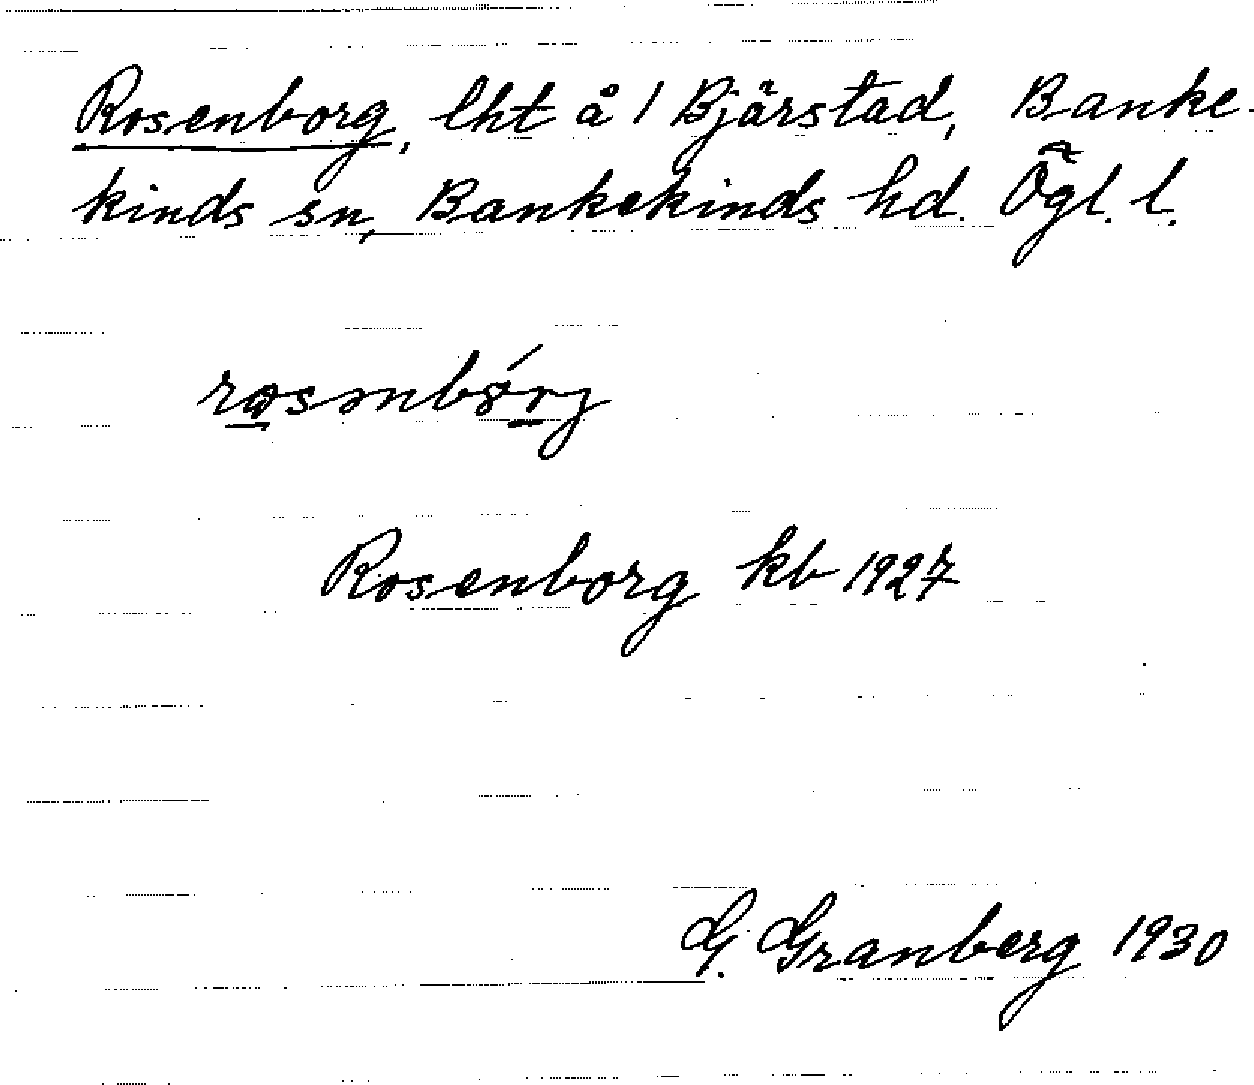 Rosenborg, lht å 1 Bjärstad, Banke-
kinds sn, Bankekinds hd. Ögl. l.
Rosenborg kb 1927
G. Granberg 1930